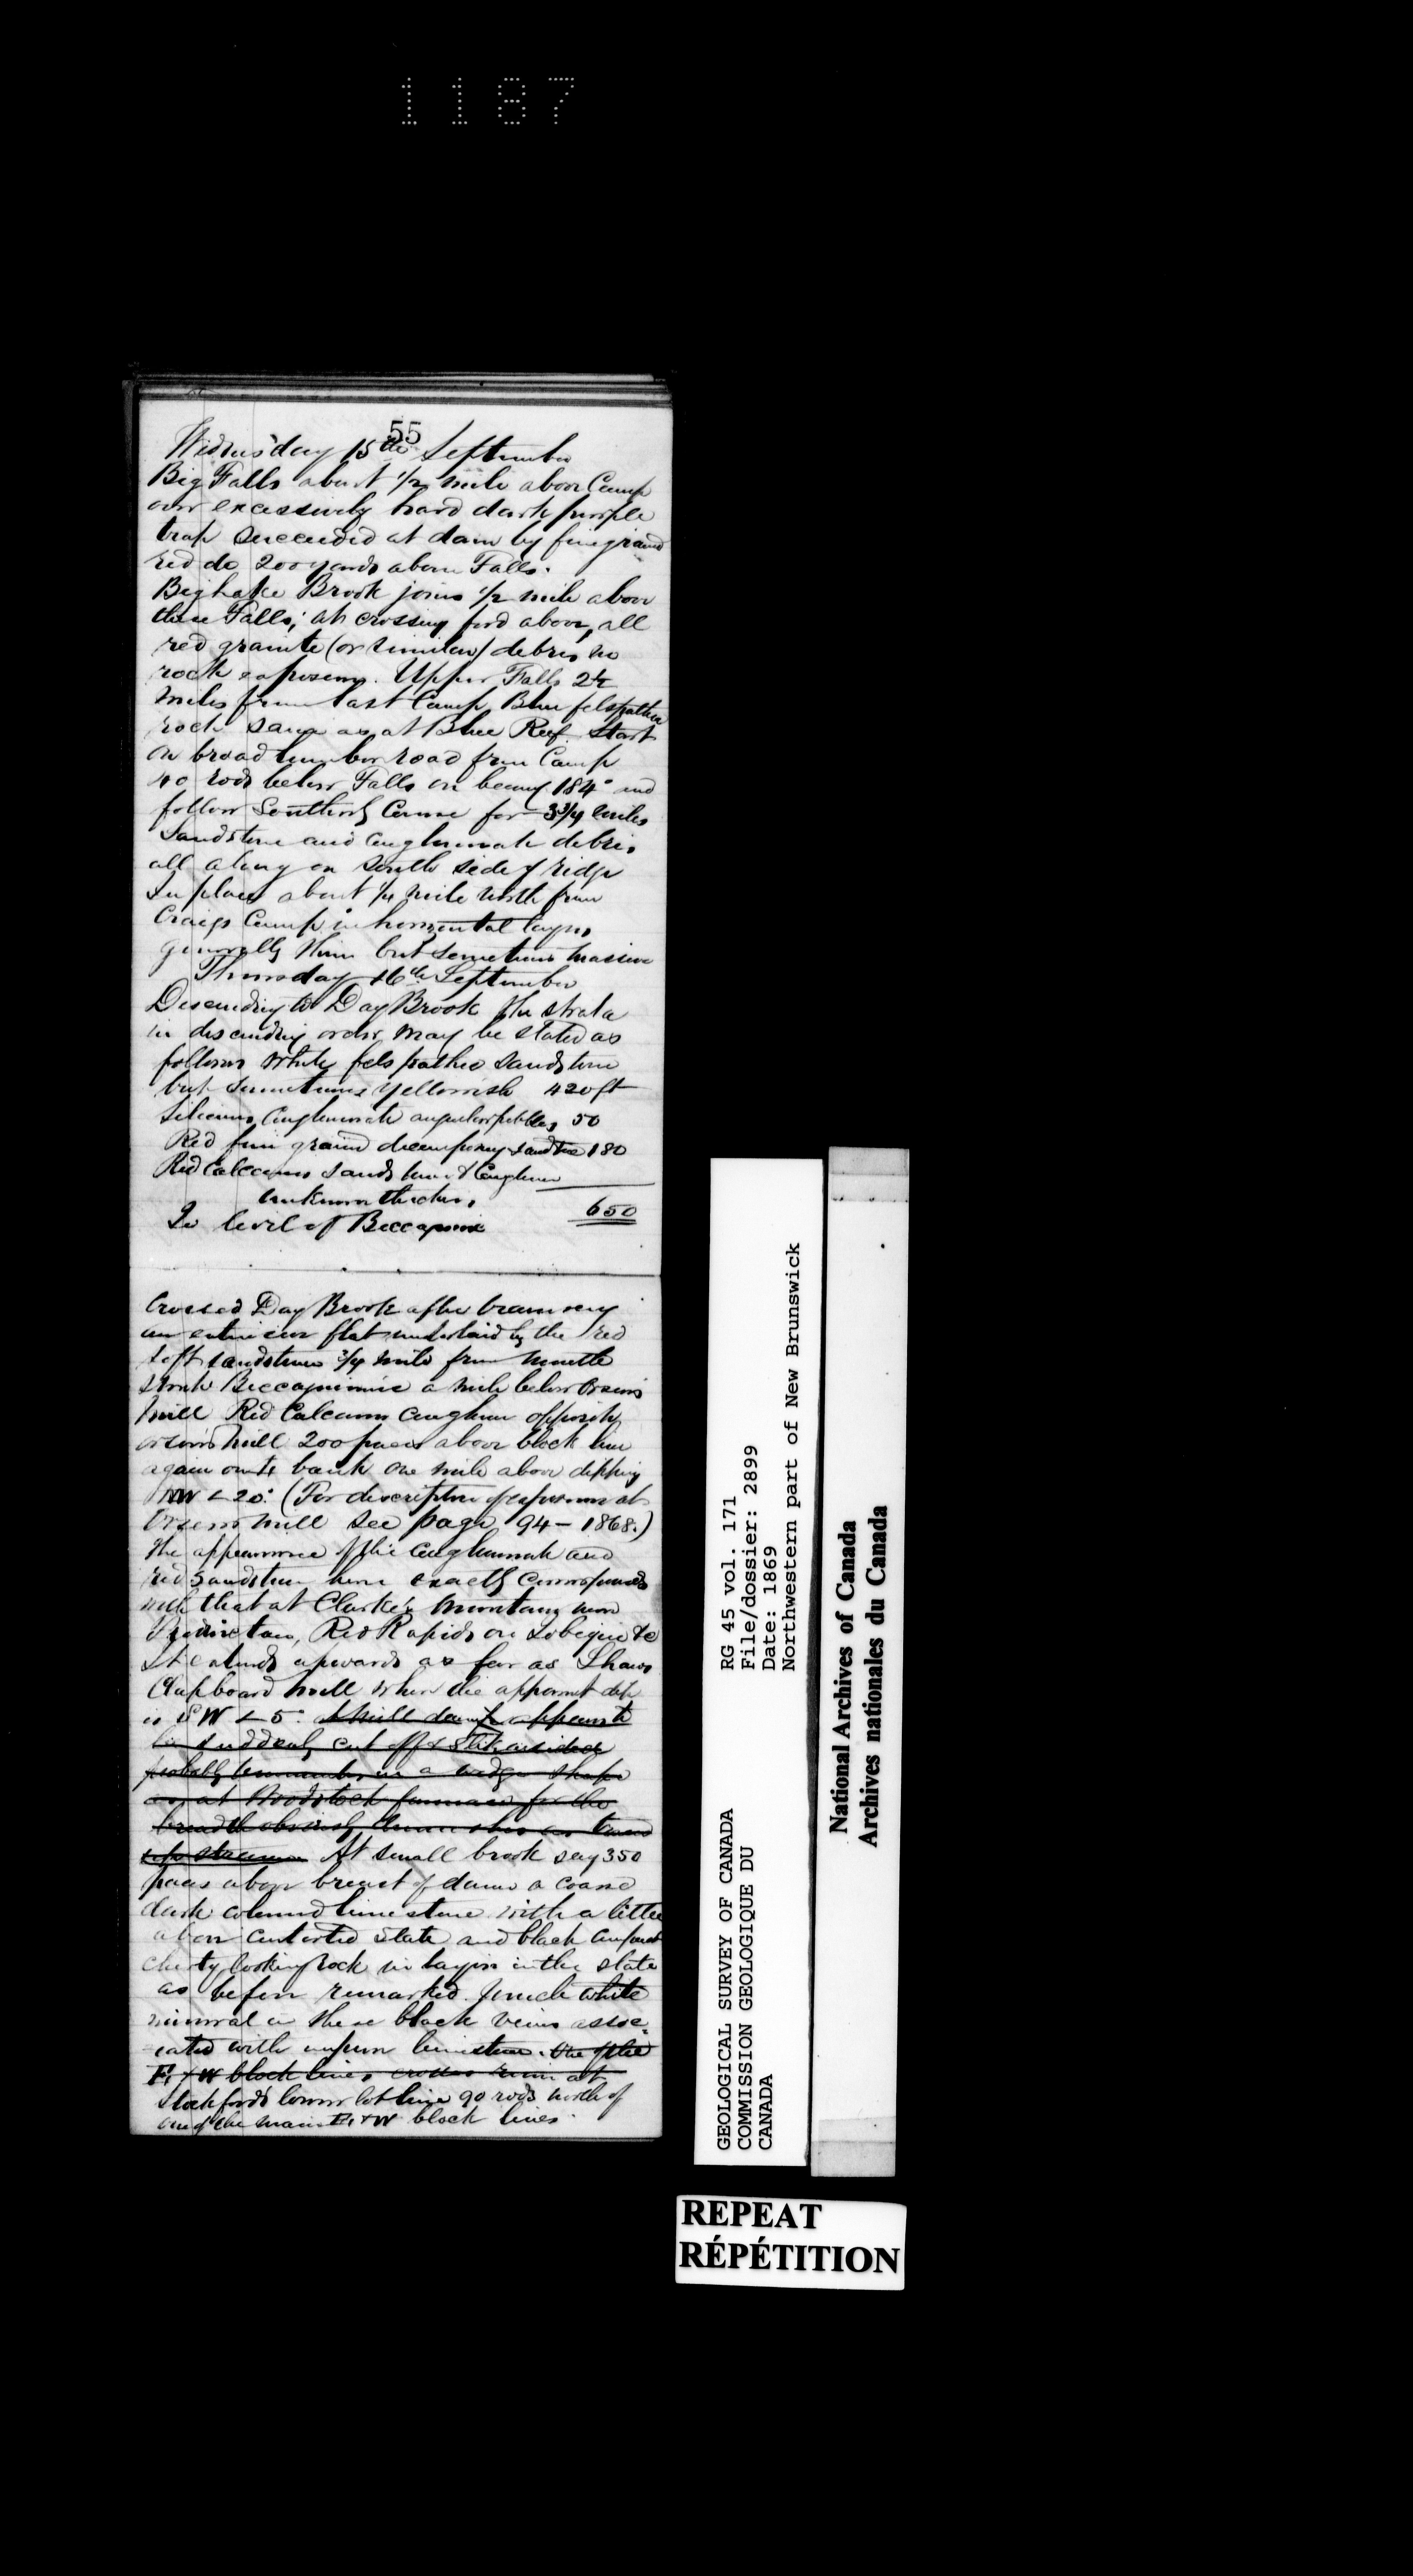 1187
55
Wednesday 15th September
Big Falls about 1/2 mile above Camp
over excessively hard dark purple
trap succeeded at dam by fine grained
red do 200 yards above Falls.
Big Lake Brook joins 1/2 mile above
these Falls; at crossing ford above, all
red granite (or similar) debris no
rock exposures. Upper Falls 2 1/2
miles from last Camp Blue felspathic
rock same as at Blue Reef. Start
on broad lumber road from Camp
40 rods below Falls on bearing 184° and
follow Southerly Course for 3 3/4 miles
Sandstone and conglomerate debris
all along on South side of ridge
In place about 1/4 mile North from
Craigs Camp in horizontal layers
generally thin but sometimes massive
Thursday 16th September
Descending to Day Brook the strata
in descending order may be stated as
follows White felspathic sandstone
but sometimes yellowish 420 ft
Silicious Conglomerate angular pebbles 50
Red fine grained decomposing sandstone 180
Red Calcareous Sandstone & Conglom
unknown thickness
To level of Beccaguimic 650
Crossed Day Brook after traversing
an extensive flat underlaid by the red
soft sandstone 3/4 mile from mouth
Struck Beccaguimic a mile below
mill Red Calcareous Conglom opposite
mill 200 paces above block line
again on bank one mile above dipping
NW ∠ 20° (For description of exposures at
mill see page 94 - 1868.)
The appearance of the Conglomerate and
red Sandstone here exactly corresponds
with that at Clarke's Mountain near
Fredericton, Red Rapids on Tobique &c
It extends upwards as far as Shaws
Clapboard mill where the apparent dip
is SW ∠ 5°. At mill dam it appears to
be suddenly cut off &
probably terminates in a wedge shape
as at Woodstock furnace for the
breadth obviously diminishes as
up stream At small brook say 350
paces above breast of dam a coarse
dark coloured limestone with a little
above contorted slate and black compact
cherty looking rock in layers in the slate
as before remarked. Much white
mineral in these black veins assoc-
iated with impure limestone. One of the
E & W block lines crosses at
Stockford's lower lot line 90 rods north of
one of the main E & W block lines.
GEOLOGICAL SURVEY OF CANADA
COMMISSION GEOLOGIQUE DU
CANADA
RG 45 vol. 171
File/dossier: 2899
Date: 1869
Northwestern part of New Brunswick
National Archives of Canada
Archives nationales du Canada
REPEAT
RÉPÉTITION